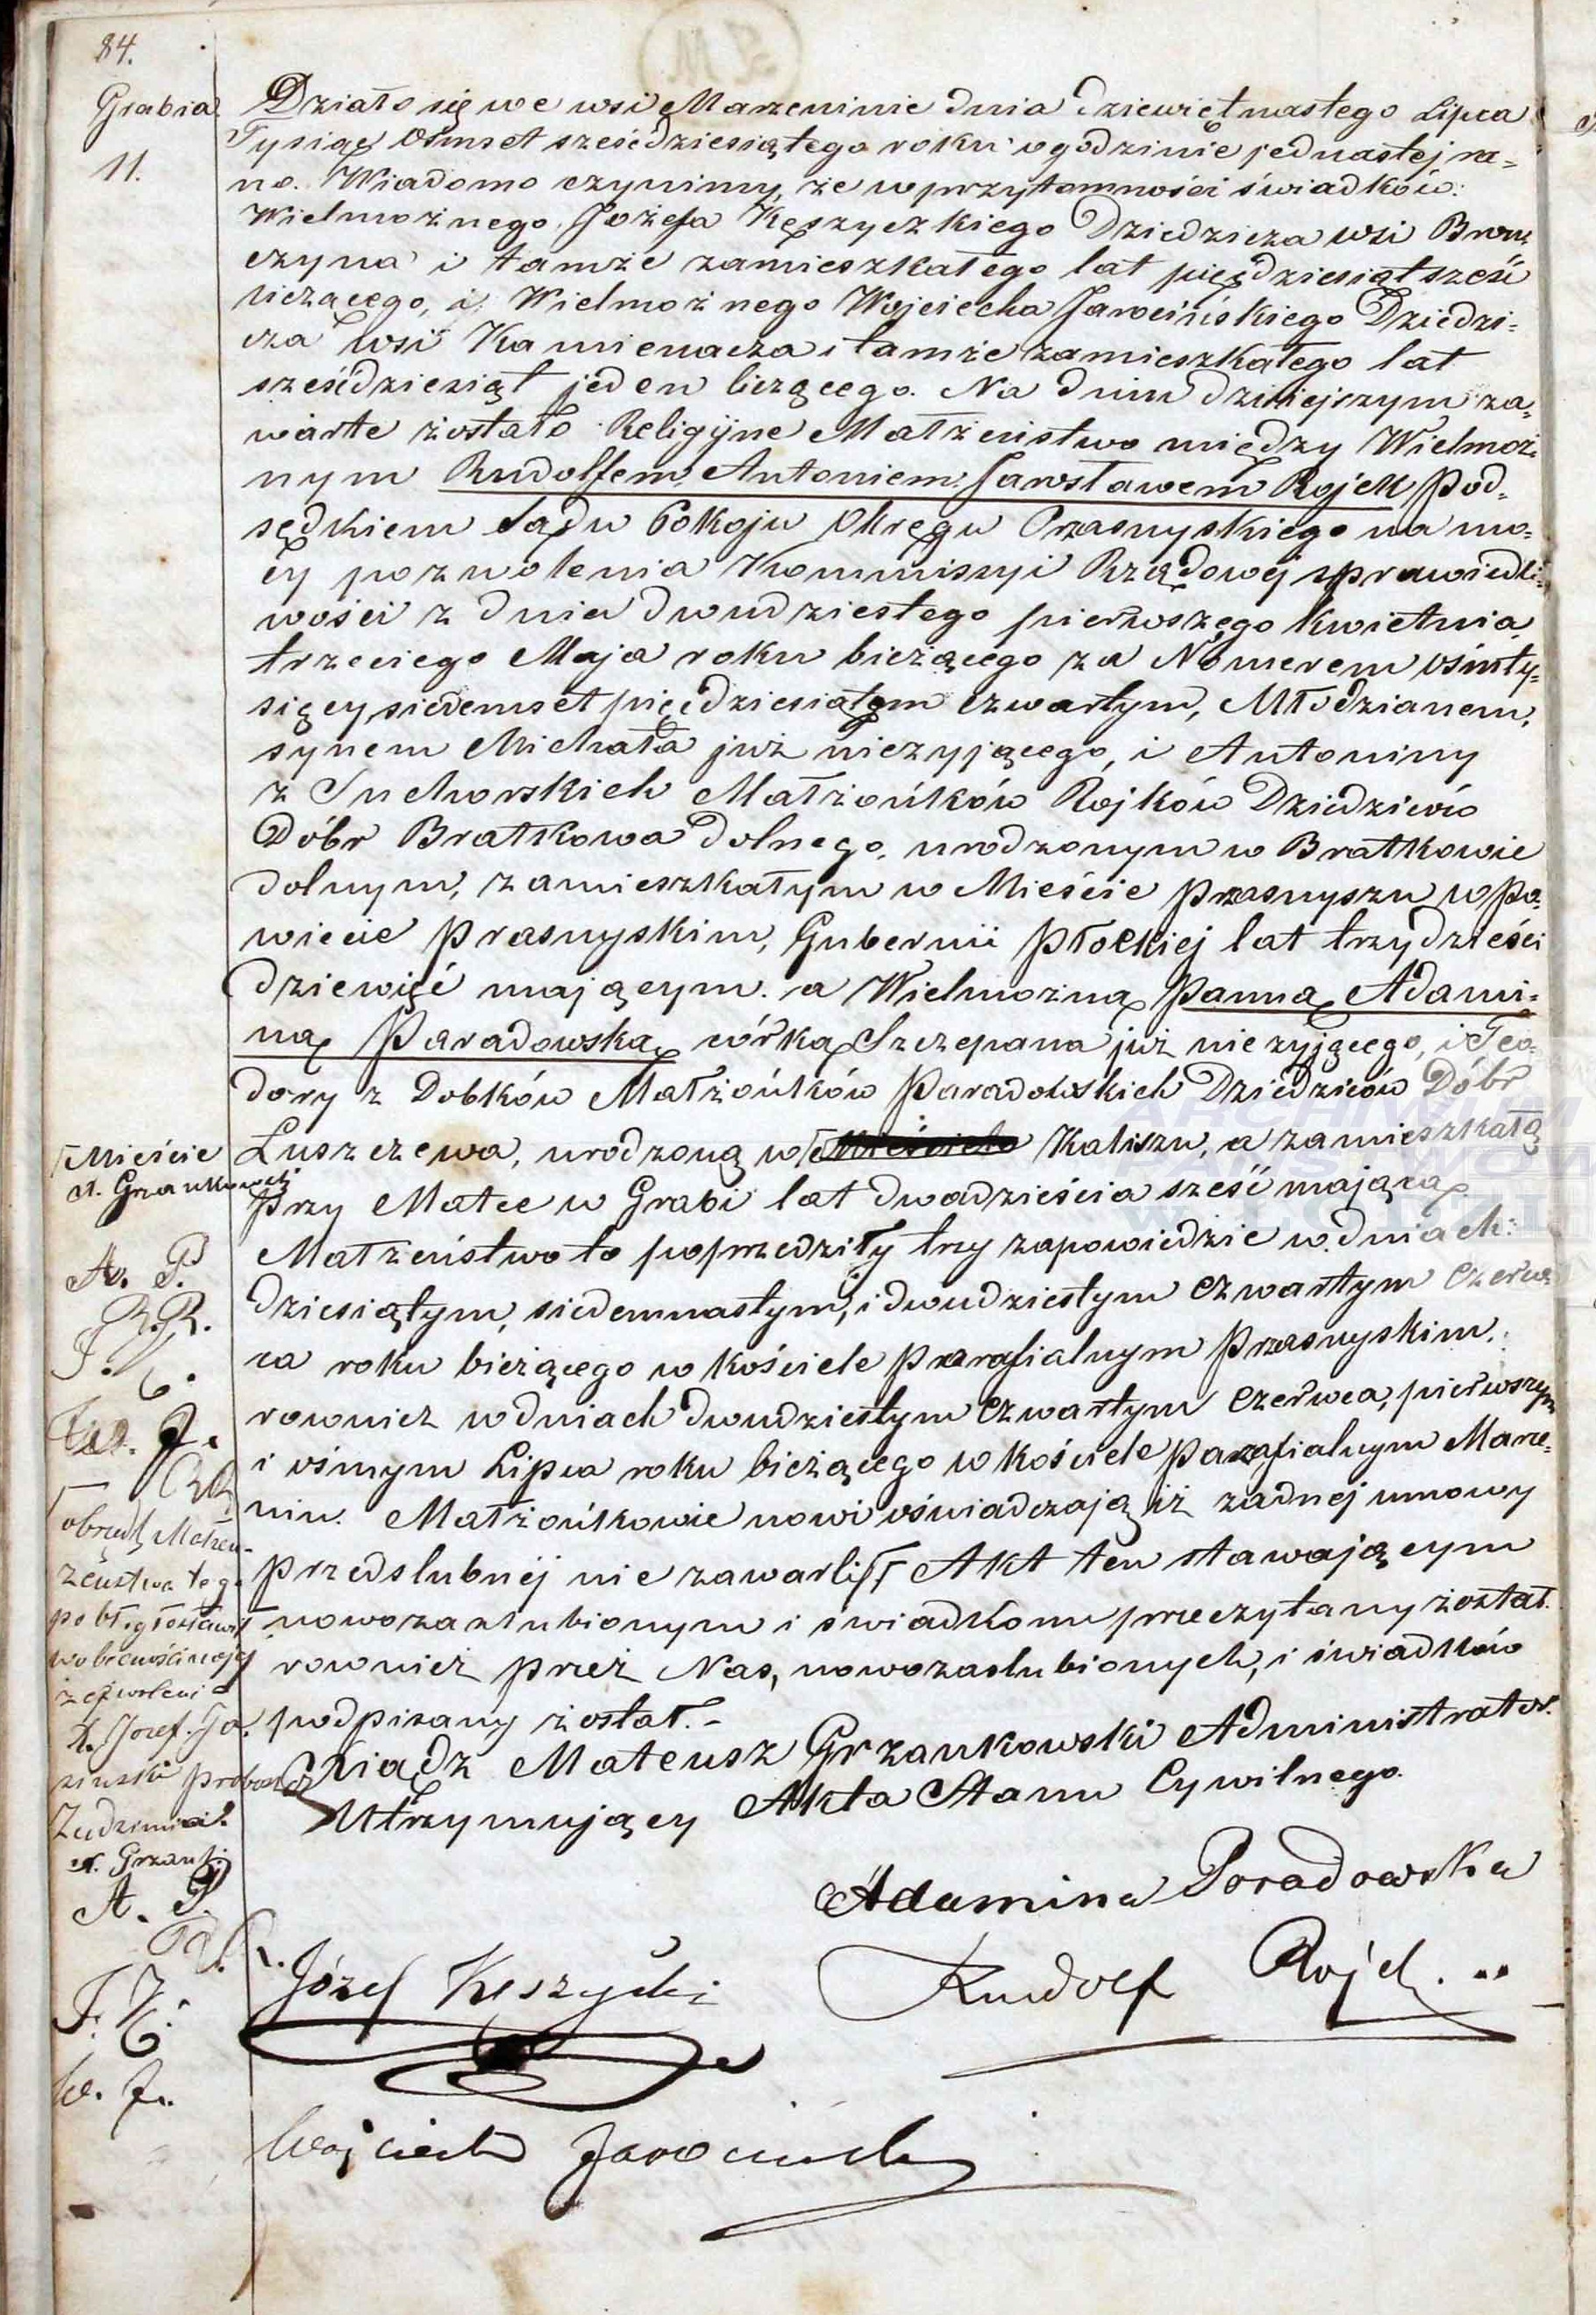 84.
Grabia
11.
Działo się we wsi Marzeninie dnia dziewiętnastego Lipca
Tysiąc Ośmset sześćdziesiątego roku o godzinie jednastej ra=
no. Wiadomo czynimy, że w przytomności świadków:
Wielmożnego Józefa Kęszyczkiego Dziedzica wsi Brou
czyna i tamże zamieszkałego lat pięćdziesiąt sześć
liczącego, i Wielmożnego Wojciecha Jarocińskiego Dziedzi=
cza wsi Kamienacza i tamże zamieszkałego lat
sześćdziesiąt jeden liczącego. Na dniu dzisiejszym za=
warte zostało Religijne Małżeństwo między Wielmoż=
nym Rudolfem Antoniem Jarosławem Rojek Pod=
sędkiem Sądu Pokoju Okręgu Przasnyskiego na mo=
cy pozwolenia Kommissyi Rządowej sprawiedli=
wości z dnia dwudziestego pierwszego Kwietnia
trzeciego Maja roku bieżącego za Nomerem ośmty=
sięcy siedemset pięćdziesiątem czwartym, Młodzianem,
synem Michała już nieżyjącego, i Antoniny
z Suchorskich Małżonków Rojków Dziedziców
Dóbr Bratkowa dolnego, urodzonym w Bratkowie
dolnym, zamieszkałym w Mieście Przasnyszu w Po=
wiecie Prasnyskim, Gubernii Płockiej lat trzydzieści
dziewięć mającym. a Wielmożną Panną Adami=
ną Paradowską córką Szczepana już nie żyjącego, i Teo=
dory z Dobków Małżonków Paradowskich Dziedziców Dóbr
Luszczewa, urodzoną w Kaliszu, a zamieszkałą
przy Matce w Grabi lat dwadzieścia sześć mającą
Małżeństwo to poprzedziły trzy zapowiedzie w dniach:
dziesiątym, siedemnastym, i dwudziestym czwartym Czerw=
ca roku bieżącego w kościele Parafialnym Przasnyskim,
rownież w dniach dwudziestym czwartym Czerwca, pierwszym
i ósmym Lipca roku bieżącego w kościele Parafialnym Marze=
nin. Małżonkowie nowi oświadczają iż żadnej umowy
przedslubnéj nie zawarli Akt ten stawającym
nowozaslubionym i swiadkom przeczytany został.
rownież przez Nas, nowozaslubionych, i świadków
podpisany został.-
Xiądz Mateusz Grzankowski Administrator.
Utrzymujący Akta Stanu Cywilnego.
Adamina Poradowska
Józef Kęszycki
Rudolf Rojek
Wojciech Jarociński
Mieście
X. Grzankowski
A. P.
R. R.
J. K.
W. J.
obrzęd Małżeń-
żeństwa tego
pobłogosławił
w obecności mojej
z zezwoleni
X. Józef
Proboszcz
X. Grzank.
A. P.
J. K.
W. J.
ARCHIWUM
PAŃSTWOWE
W ŁODZI